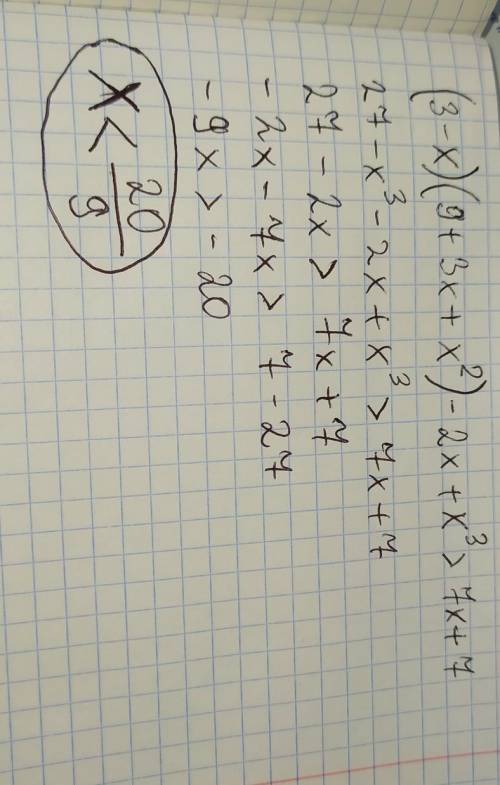 (3-x)(9+3x+x²)-2x+x³>7x+7
27-x³-2x+x³>7x+7
27-2x>7x+7
-2x-7x>7-27
-9x>-20
x<20/9